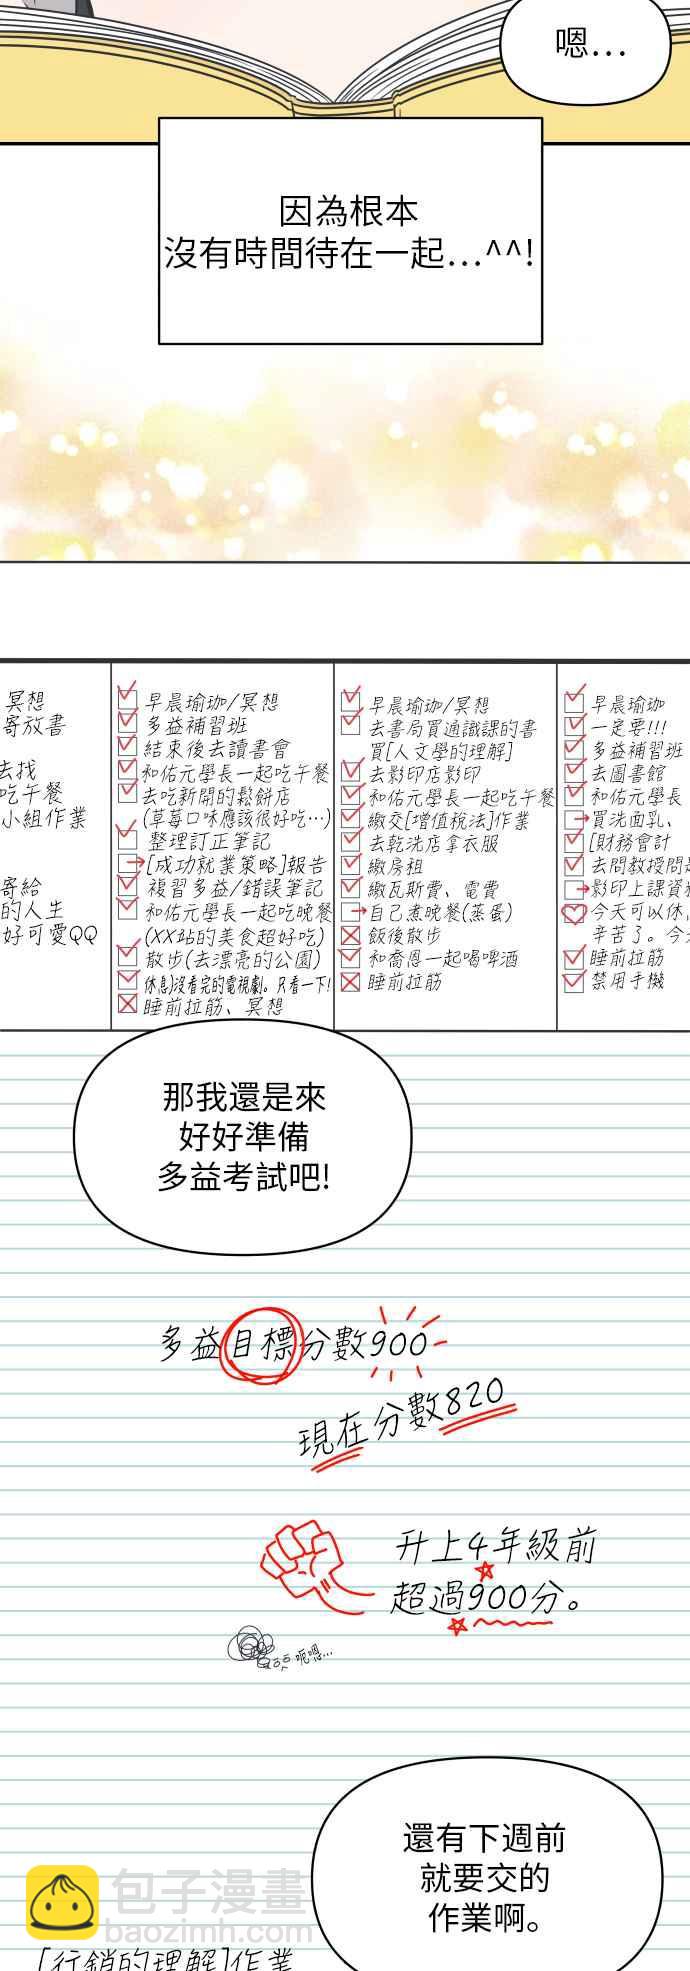 嗯...
因為根本
沒有時間待在一起...^^!
冥想
寄放書
去找
吃午餐
小組作業
寄給
的人生
好可愛QQ
早晨瑜珈/冥想
多益補習班
結束後去讀書會
和佑元學長一起吃午餐
去吃新開的鬆餅店
(草莓口味應該很好吃...)
整理訂正筆記
→[成功就業策略]報告
複習多益/錯誤筆記
和佑元學長一起吃晚餐
(XX站的美食超好吃)
散步(去漂亮的公園)
休息)沒看完的電視劇。只看一下!
睡前拉筋、冥想
早晨瑜珈/冥想
去書局買通識課的書
買[人文學的理解]
去影印店影印
和佑元學長一起吃午餐
繳交[增值稅法]作業
去乾洗店拿衣服
繳房租
繳瓦斯費、電費
→自己煮晚餐(蒸蛋)
飯後散步
和喬恩一起喝啤酒
睡前拉筋
早晨瑜珈
一定要!!!
多益補習班
去圖書館
和佑元學長
→買洗面乳、
[財務會計
去問教授問
→影印上課資
今天可以休
辛苦了。今
睡前拉筋
禁用手機
那我還是來
好好準備
多益考試吧!
多益目標分數900
現在分數820
升上4年級前
超過900分。
呃嗯...
還有下週前
就要交的
作業啊。
包子漫畫
baozimh.com
[行銷的理解]作業